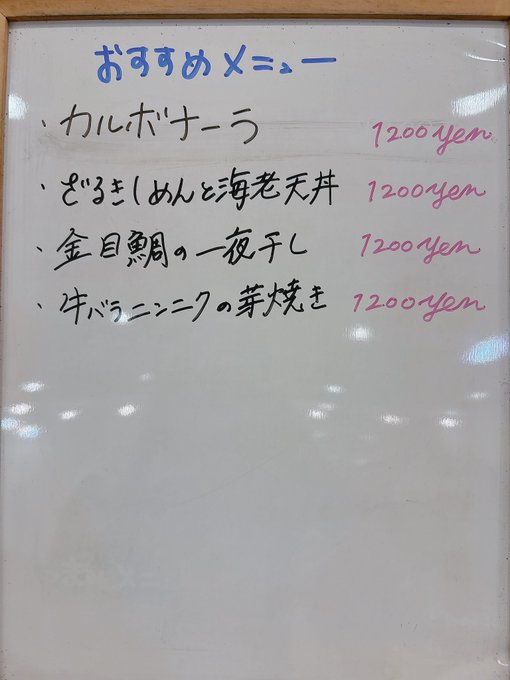 おすすめメニュー
・カルボナーラ 1200yen
・ざるきしめんと海老天丼 1200yen
・金目鯛の一夜干し 1200yen
・牛バラニンニクの芽焼き 1200yen